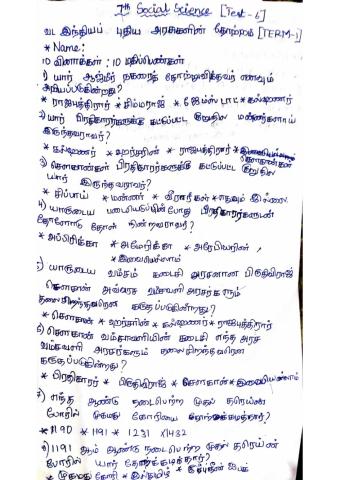 7th Social Science [Test - 6]
வட இந்தியப் புதிய அரசுகளின் தோற்றம் [TERM-1]
* Name:
10 வினாக்கள் : 10 மதிப்பெண்கள்
1) யார் ஆஜ்மீர் நகரைத் தோற்றுவித்தவர் எனவும்
அறியப்படுகிறது?
* ராஜபுத்திரர் * சிம்மராஜ் * ஜேம்ஸ் டாட் * கல்ஹணர்
2) யார் பிரதிகாரர்களுக்கு கட்டுப்பட்ட குறுநில மன்னர்களாய்
இருந்தவராவர்?
* கல்ஹணர் * ஹர்சரின் * ராஜபுத்திரர் *
3) சௌகான்கள் பிரதிகாரர்களுக்கு கட்டுப்பட்ட குறுநில
யார் இருந்தவராவர்?
* சிப்பாய் * மன்னர் * வீரர்கள் * எதுவும் இல்லை
4) யாருடைய படையெடுப்பின்போது பிரதிகாரர்களுடன்
தோளோடு தோள் நின்றவராவர்?
* அப்பிரிக்கா * அமேரிக்கா * அரேபியரின்
* இவையெல்லாம்
5) யாருடைய வம்சம் கடைசி அரசனான பிருதிவிராஜ்
சௌகான் அவ்வரச வம்சவளி அரசர்களும்
தலைசிறந்தவரென கருதப்படுகிறது?
* சௌகான் * ஹர்சரின் * கல்ஹணர் * ராஜபுத்திரர்
6) சௌகான் வம்சாவளியின் கடைசி எந்த அரச
வம்சவளி அரசர்களும் தலைசிறந்தவரென
கருதப்படுகிறது?
* பிரதிகாரர் * பிருதிவிராஜ் * சௌகான் * இவையெல்லாம்
7) எந்த ஆண்டு நடைபெற்ற முதல் தரெய்ன்
போரில் முகமது கோரியை தோற்கடித்தார்?
* 1190 * 1191 * 1231 * 1432
8) 1191 ஆம் ஆண்டு நடைபெற்ற முதல் தரெய்ன்
போரில் யார் தோற்கடித்தார்?
* முகமது கோரி *